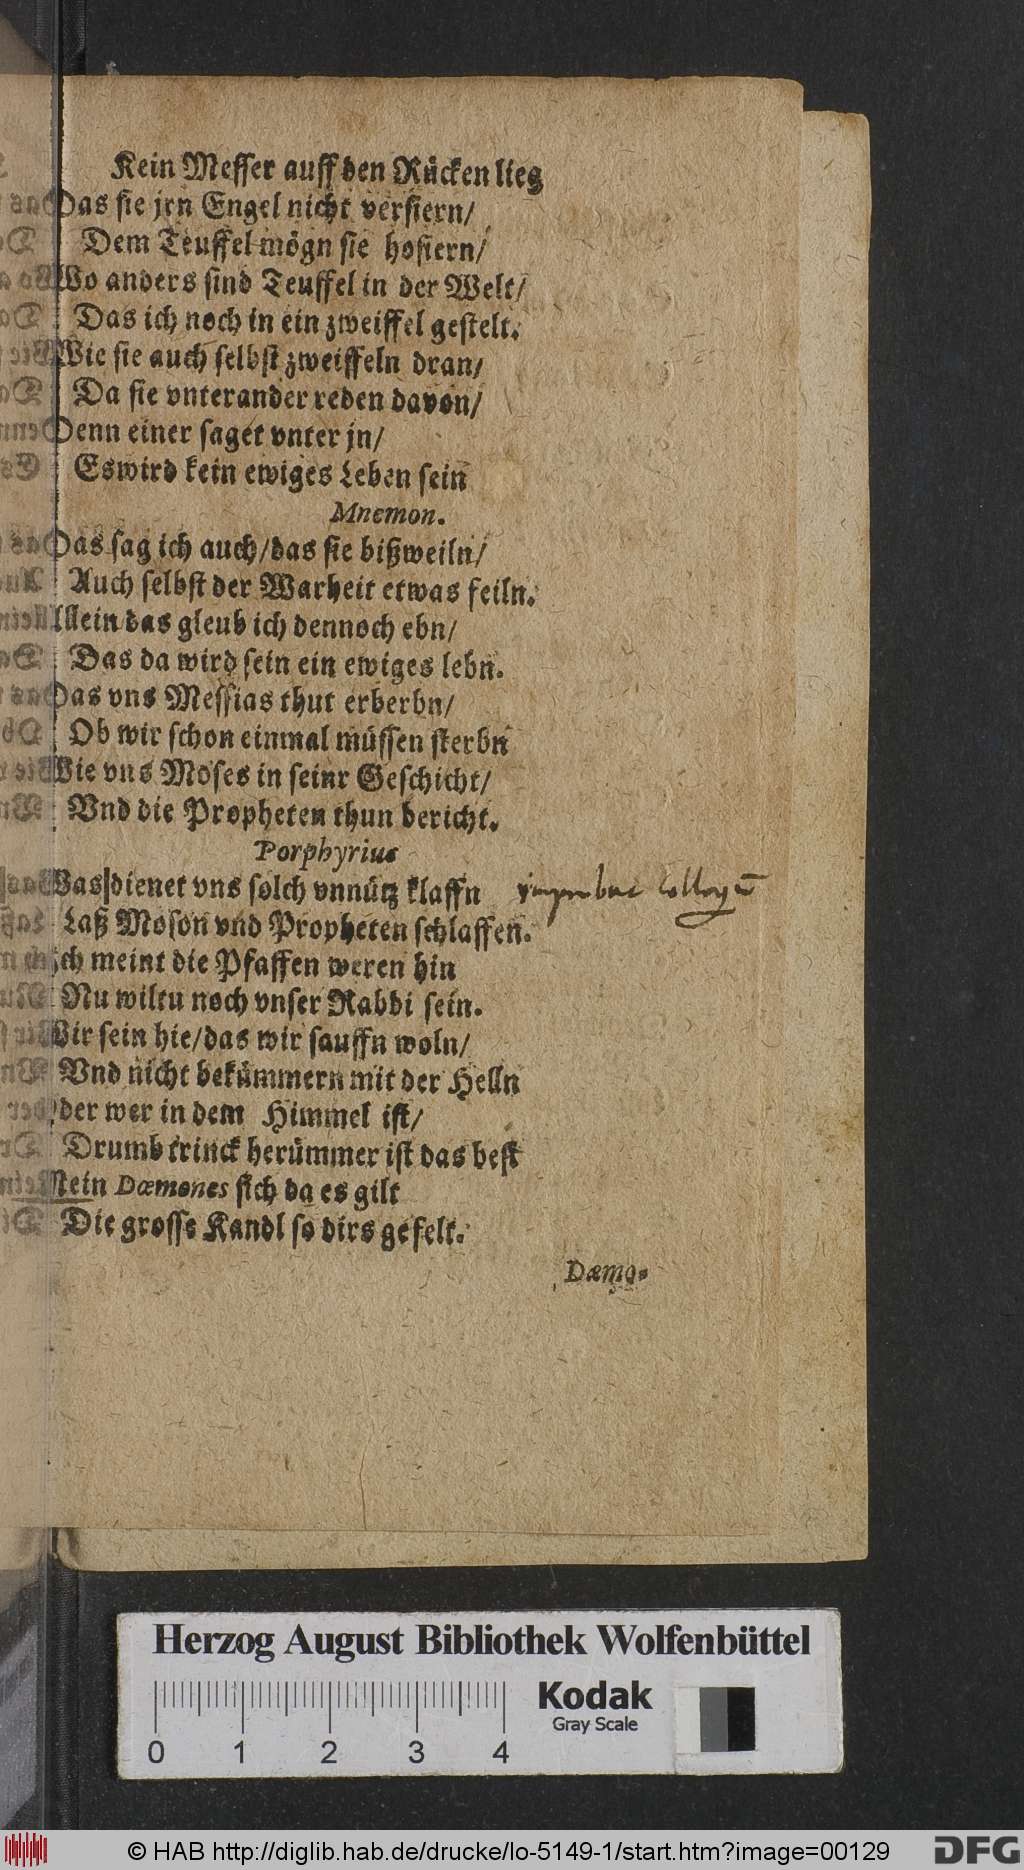 Kein Messer auff den Rücken lieg
Das sie jrn Engel nicht versiern/
Dem Teuffel mögn sie hofiern/
Wo anders sind Teuffel in der Welt/
Das ich noch in ein zweiffel gestelt.
Wie sie auch selbst zweiffeln dran/
Da sie vnterander reden davon/
Denn einer saget vnter jn/
Eswird kein ewiges Leben sein
Mnemon.
Das sag ich auch/das sie bißweiln/
Auch selbst der Warheit etwas feiln.
Allein das gleub ich dennoch ebn/
Das da wird sein ein ewiges lebn.
Das vns Messias thut erberbn/
Ob wir schon einmal müssen sterbn
Wie vns Moses in seinr Geschicht/
Vnd die Propheten thun bericht.
Porphyrius
Was dienet vns solch vnnütz klaffn
Laß Moson vnd Propheten schlaffen.
Ich meint die Pfaffen weren hin
Nu wiltu noch vnser Rabbi sein.
Wir sein hie/das wir sauffn woln/
Vnd nicht bekümmern mit der Helln
Oder wer in dem Himmel ist/
Drumb trinck herümmer ist das best
Mein Dæmones sich da es gilt
Die grosse Kandl so dirs gefelt.
Dæmo-
Herzog August Bibliothek Wolfenbüttel
Kodak
Gray Scale
0 1 2 3 4
© HAB http://diglib.hab.de/drucke/lo-5149-1/start.htm?image=00129
DFG